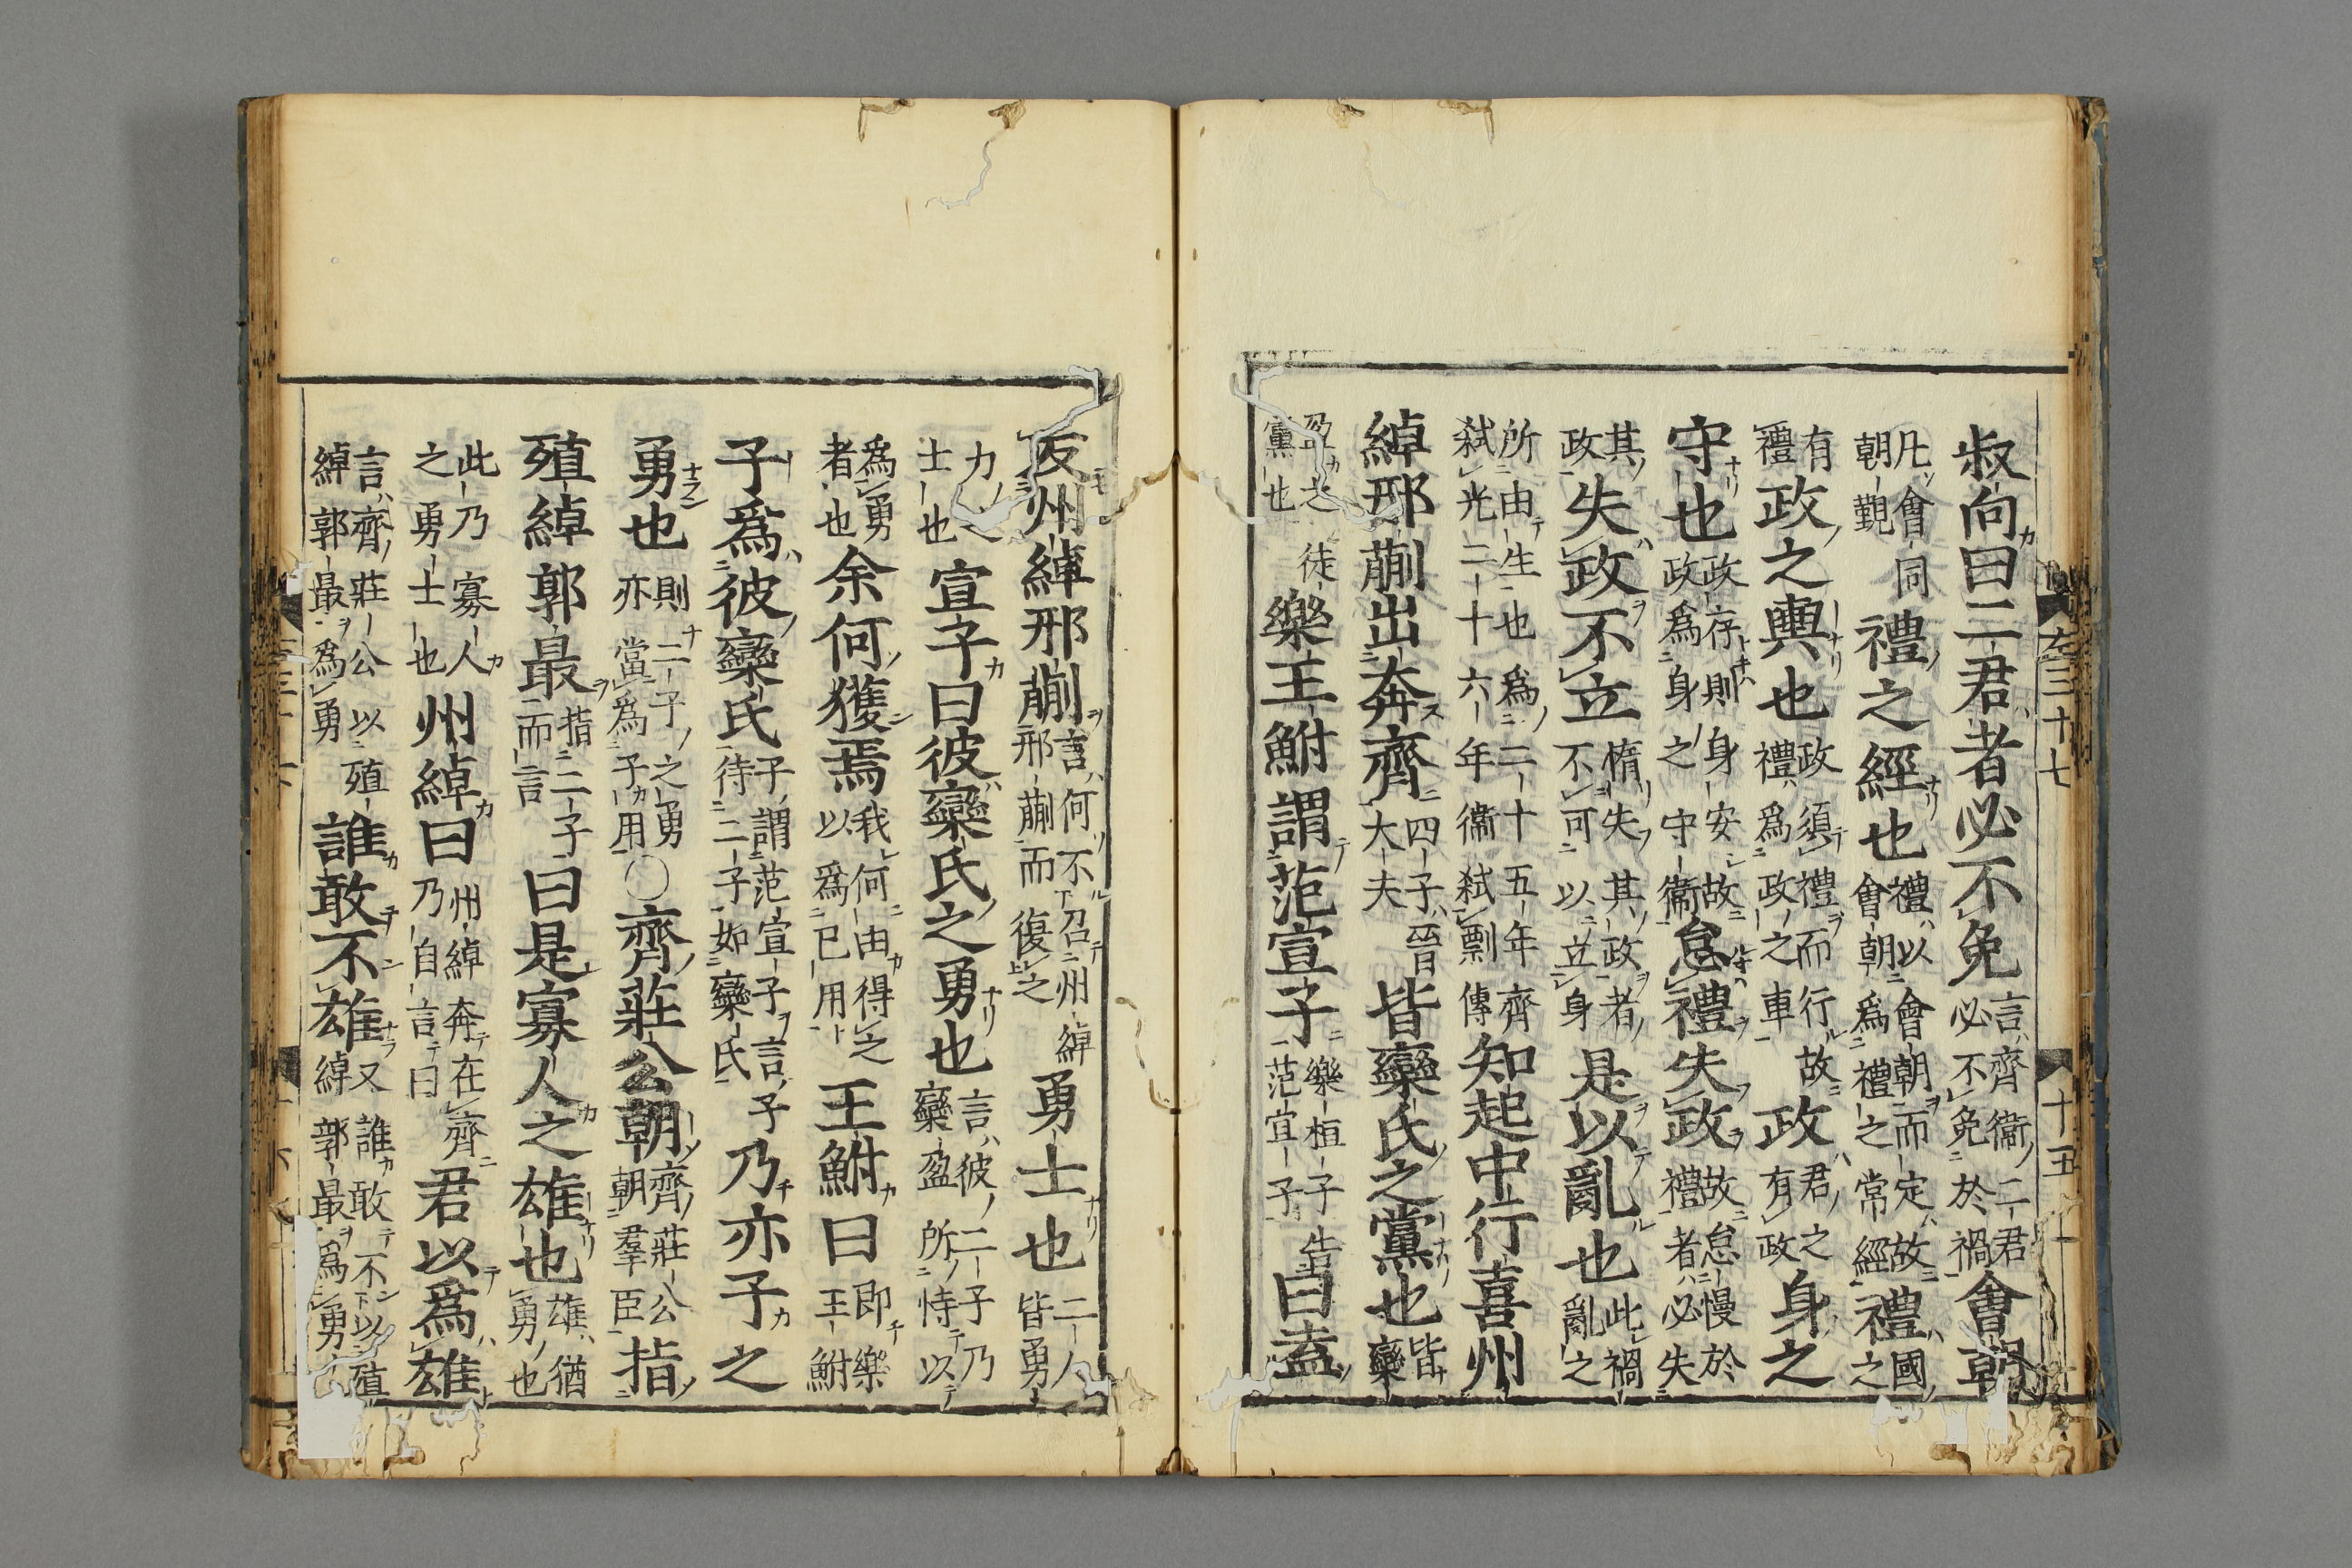 叔向曰二君者必不免言齊衞二君必不免於禍會朝
凡會同朝覲禮之經也禮以會朝而定故會朝爲禮之常經禮國之
有禮政之輿也政須禮而行故禮爲政之車政君之有政身之
守也政存則身安故政爲身之守衞怠禮失政故怠慢於禮者必失
其政失政不立惰失其政者不可以立身是以亂也此禍亂之
所由生也爲二十五年齊弑光二十六年衞弑剽傳知起中行喜州
綽邢蒯出奔齊四子晉大夫皆欒氏之黨也皆欒
盈之徒黨也樂王鮒謂范宣子樂桓子告范宣子曰盍
反州綽邢蒯言何不召州綽邢蒯而復之勇士也二人皆勇
力之士也宣子曰彼欒氏之勇也言彼二子乃欒盈所恃以
爲勇者也余何獲焉我何由得之以爲已用王鮒曰即樂王鮒
子爲彼欒氏子謂范宣子言子待二子如欒氏乃亦子之
勇也則二子之勇亦當爲子用○齊莊公朝齊莊公朝羣臣指
殖綽郭最指二子而言曰是寡人之雄也雄猶勇也
此乃寡人之勇士也州綽曰州綽奔在齊乃自言曰君以爲雄
言齊莊公以殖綽郭最爲勇誰敢不雄又誰敢不以殖綽郭最爲勇
左三十七
十五